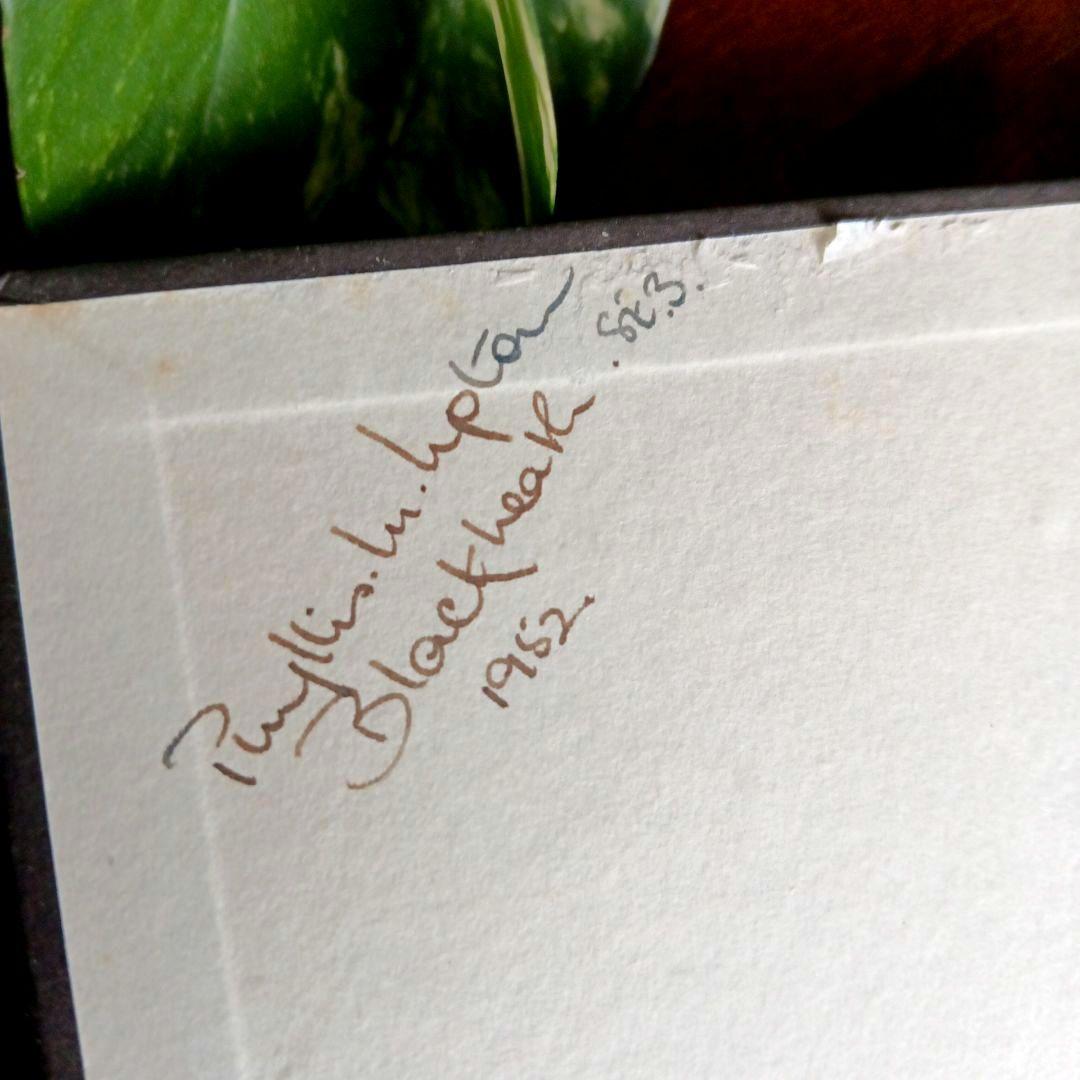 Phyllis. M. Upton
Blackheath. SE.3.
1952.